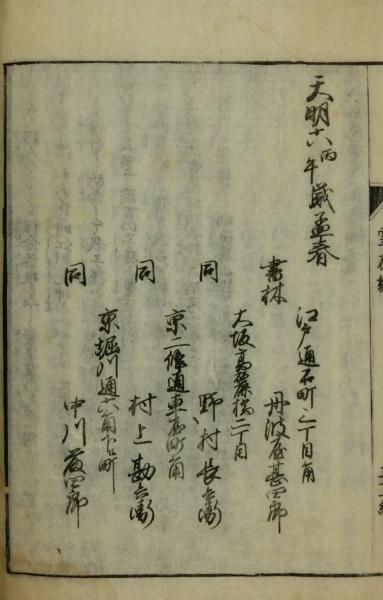 天明六丙午歳孟春
江戸通石町二丁目角
書林 丹波屋甚四郎
大坂高麗橋二丁目
同 野村長兵衛
京二條通車屋町角
同 村上勘兵衛
京堀川通六角下町
同 中川